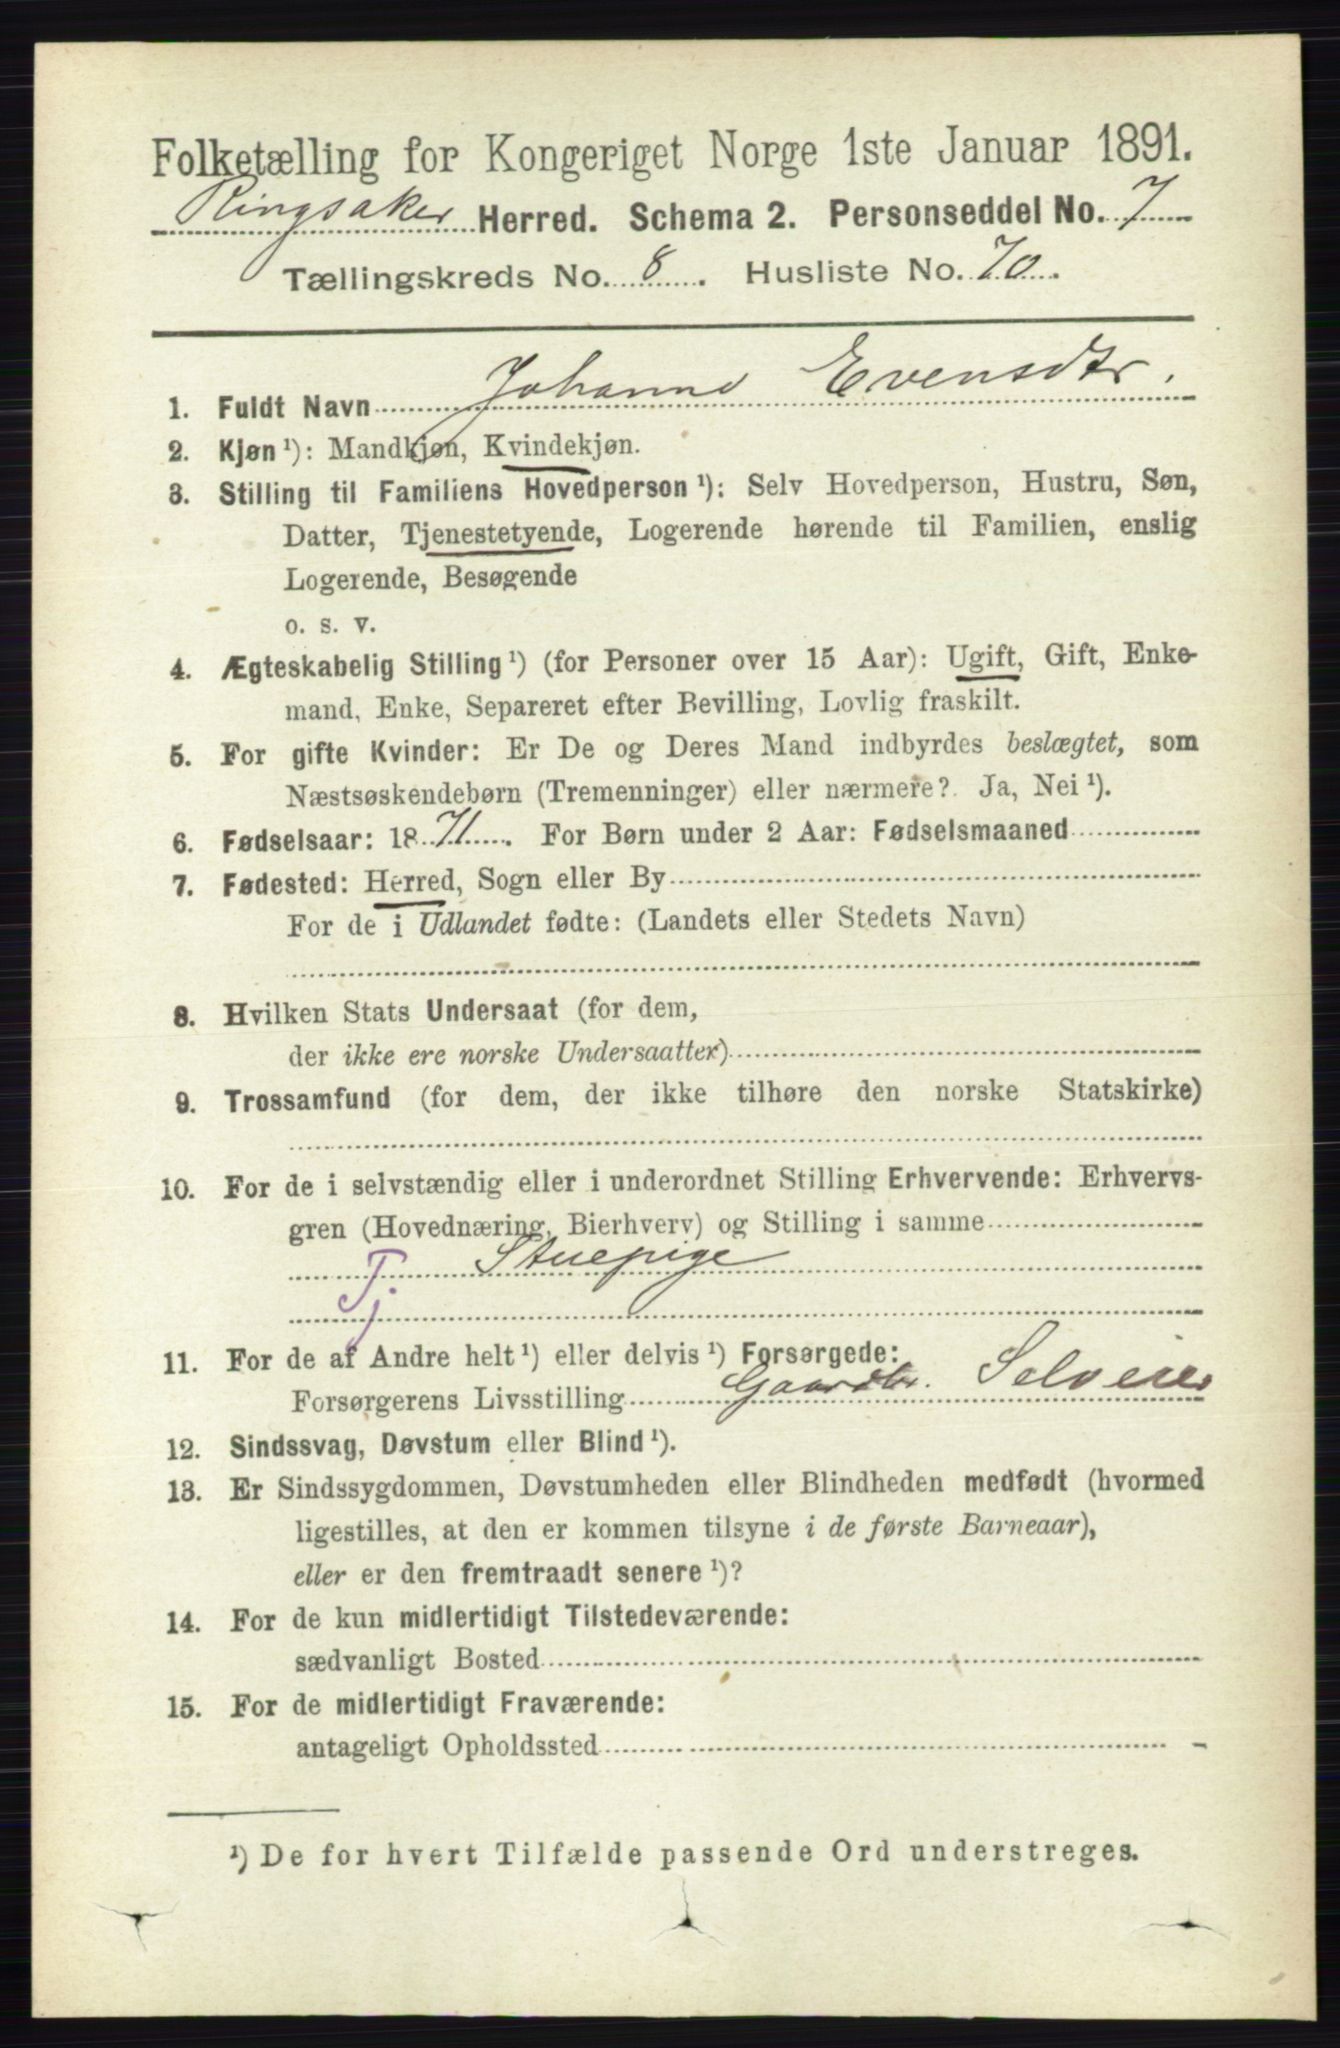 Folketælling for Kongeriget Norge 1ste Januar 1891.
Ringsaker Herred. Schema 2. Personseddel No. 7
Tællingskreds No. 8. Husliste No. 70.
1. Fuldt Navn Johanne Evensdtr.
2. Kjøn ¹): Mandkjøn, Kvindekjøn.
3. Stilling til Familiens Hovedperson ¹): Selv Hovedperson, Hustru, Søn,
Datter, Tjenestetyende, Logerende hørende til Familien, enslig
Logerende, Besøgende
o. s. v.
4. Ægteskabelig Stilling ¹) (for Personer over 15 Aar): Ugift, Gift, Enke-
mand, Enke, Separeret efter Bevilling, Lovlig fraskilt.
5. For gifte Kvinder: Er De og Deres Mand indbyrdes beslægtet, som
Næstsøskendebørn (Tremenninger) eller nærmere? Ja, Nei ¹).
6. Fødselsaar: 1871. For Børn under 2 Aar: Fødselsmaaned
7. Fødested: Herred, Sogn eller By
For de i Udlandet fødte: (Landets eller Stedets Navn)
8. Hvilken Stats Undersaat (for dem,
der ikke ere norske Undersaatter)
9. Trossamfund (for dem, der ikke tilhøre den norske Statskirke)
10. For de i selvstændig eller i underordnet Stilling Erhvervende: Erhvervs-
gren (Hovednæring, Bierhverv) og Stilling i samme
Tj Stuepige
11. For de af Andre helt ¹) eller delvis ¹) Forsørgede:
Forsørgerens Livsstilling Gaardbr. Selveier
12. Sindssvag, Døvstum eller Blind ¹).
13. Er Sindssygdommen, Døvstumheden eller Blindheden medfødt (hvormed
ligestilles, at den er kommen tilsyne i de første Barneaar),
eller er den fremtraadt senere ¹)?
14. For de kun midlertidigt Tilstedeværende:
sædvanligt Bosted
15. For de midlertidigt Fraværende:
antageligt Opholdssted
¹) De for hvert Tilfælde passende Ord understreges.